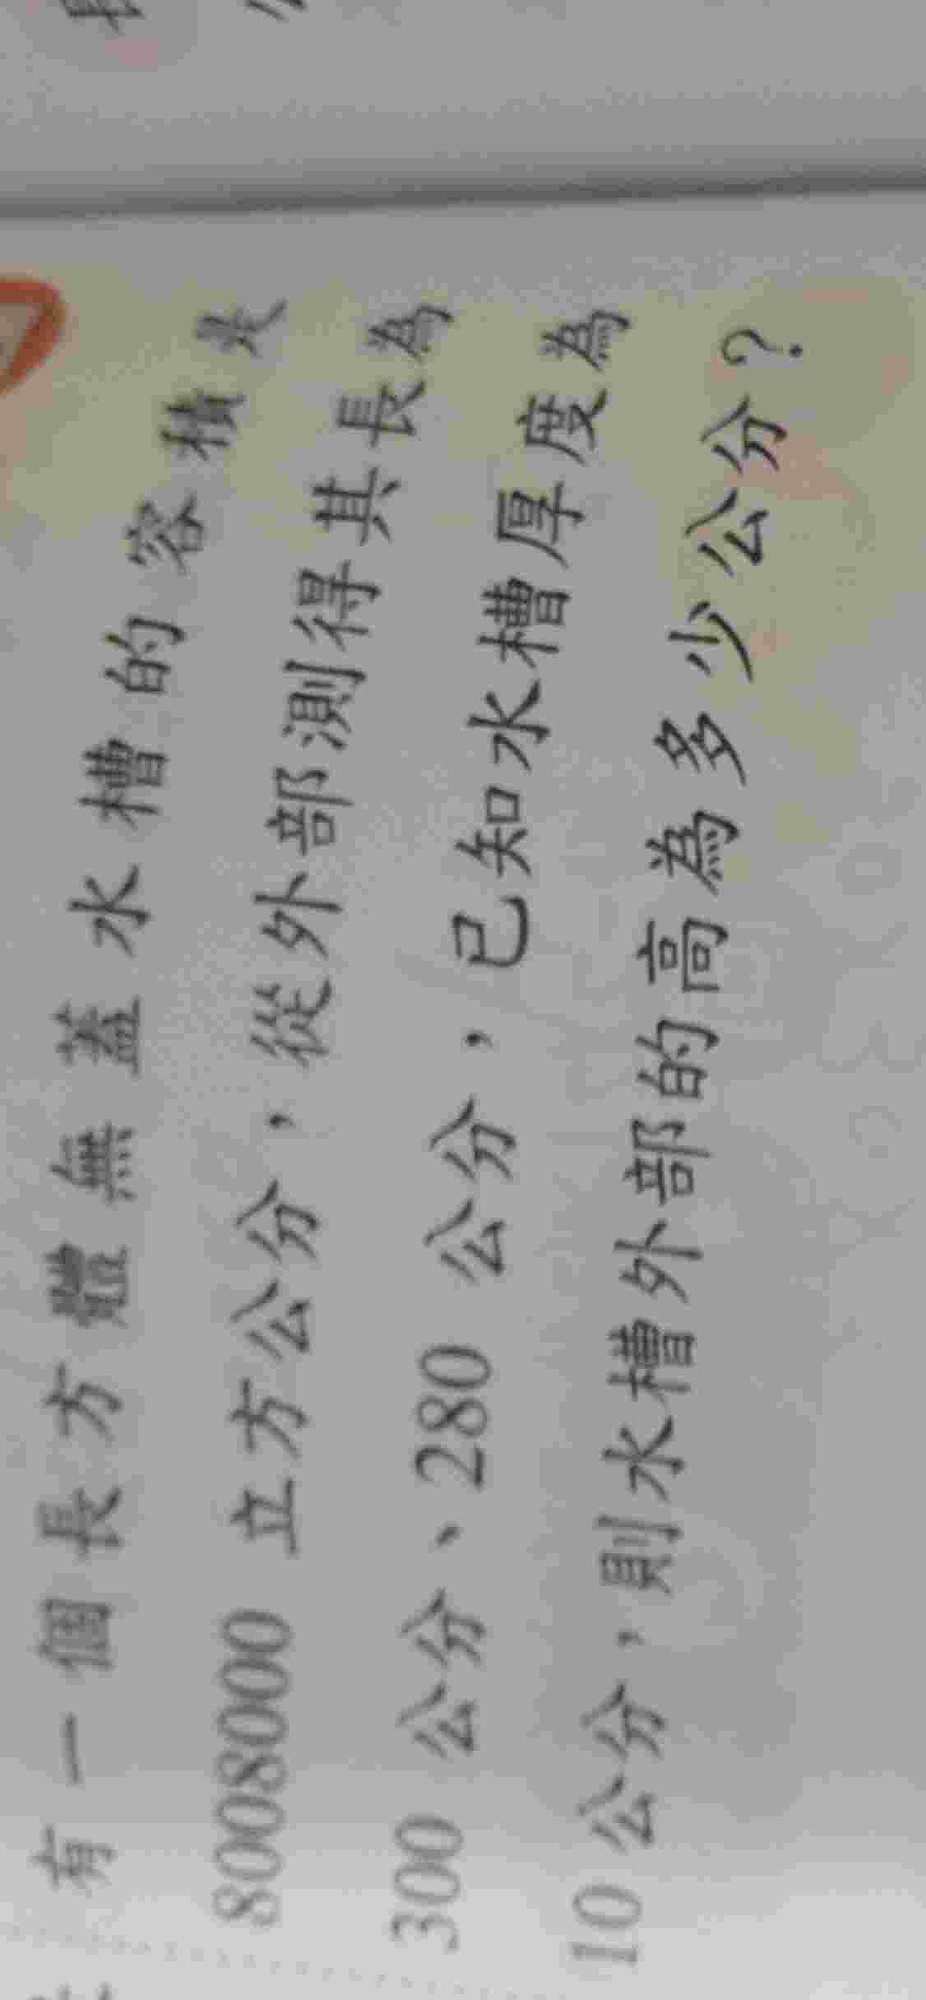 有一個長方體無蓋水槽的容積是
8008000 立方公分，從外部測得其長為
300 公分、280 公分，已知水槽厚度為
10 公分，則水槽外部的高為多少公分？